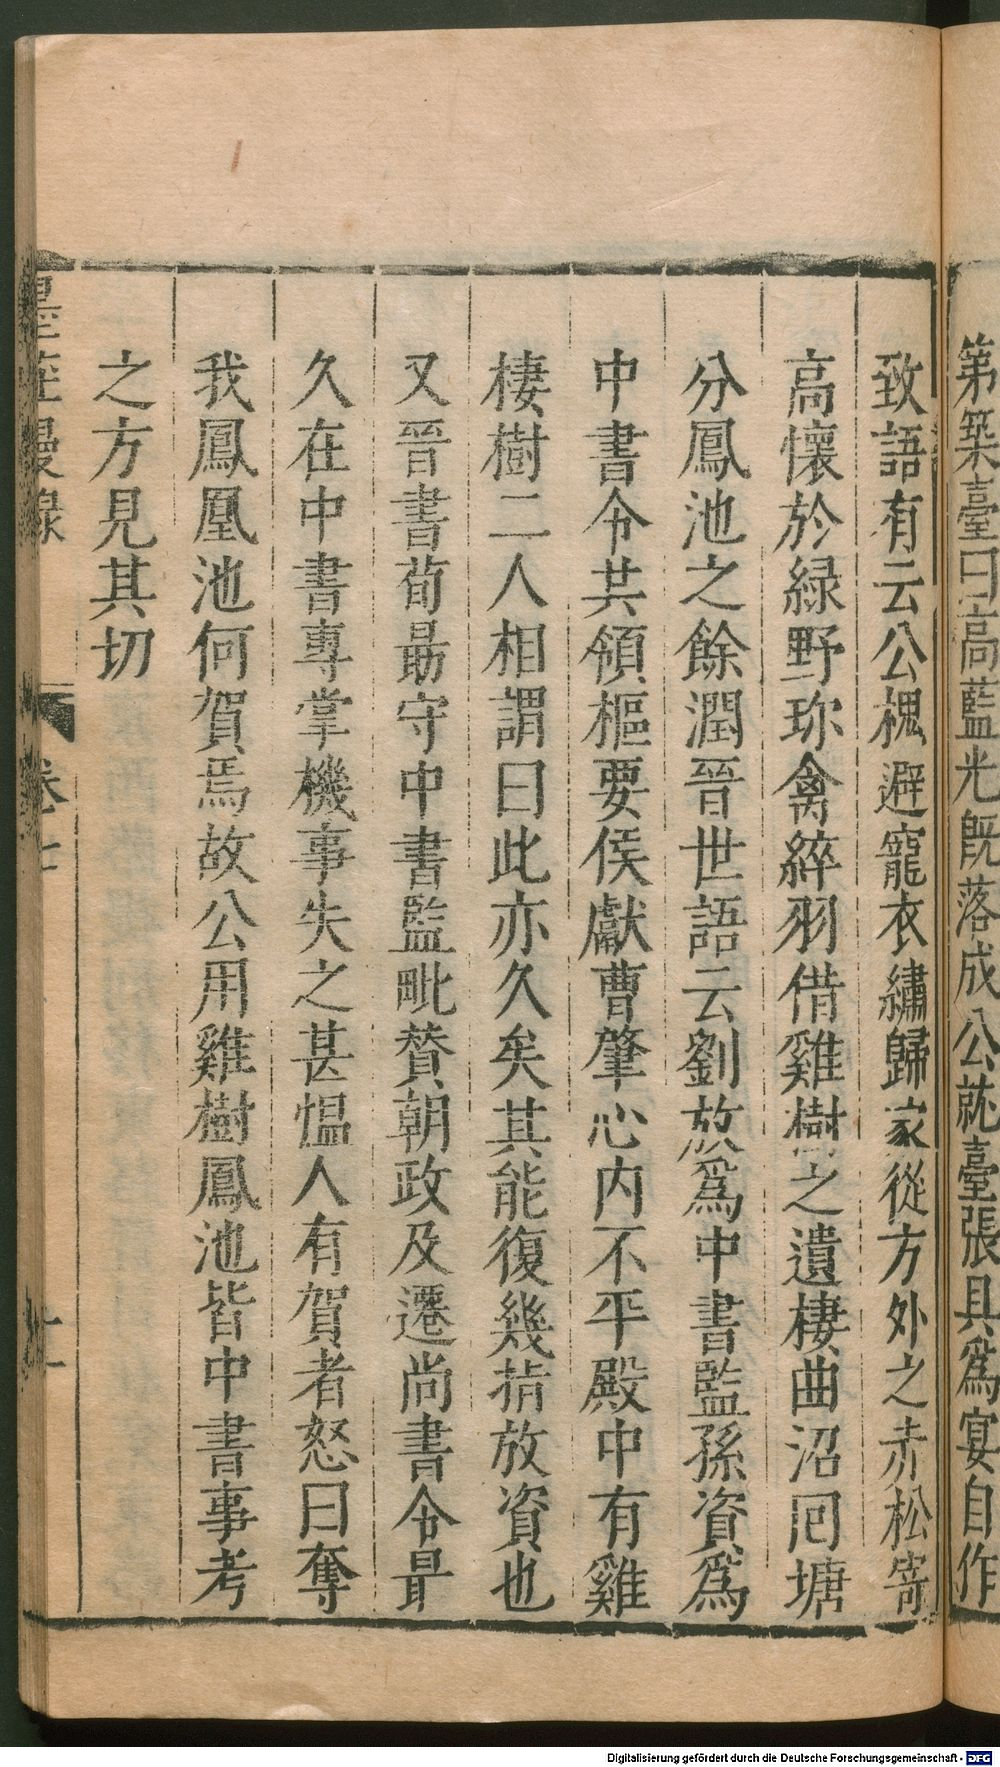 第築臺曰高藍光旣落成公就臺張具爲宴自作
致語有云公槐避寵衣繡歸家從方外之赤松寄
高懷於緑野珎禽綷羽借雞樹之遺棲曲沼囘塘
分鳳池之餘潤晉世語云劉放爲中書監孫資爲
中書令共領樞要侯獻曹肇心内不平殿中有雞
棲樹二人相謂曰此亦久矣其能復幾指放資也
又晉書荀勗守中書監毗賛朝政及遷尚書令最
久在中書專掌機事失之甚愠人有賀者怒曰奪
我鳳凰池何賀焉故公用雞樹鳳池皆中書事考
之方見其切
星莊漫録 卷七 十一
Digitalisierung gefördert durch die Deutsche Forschungsgemeinschaft - DFG